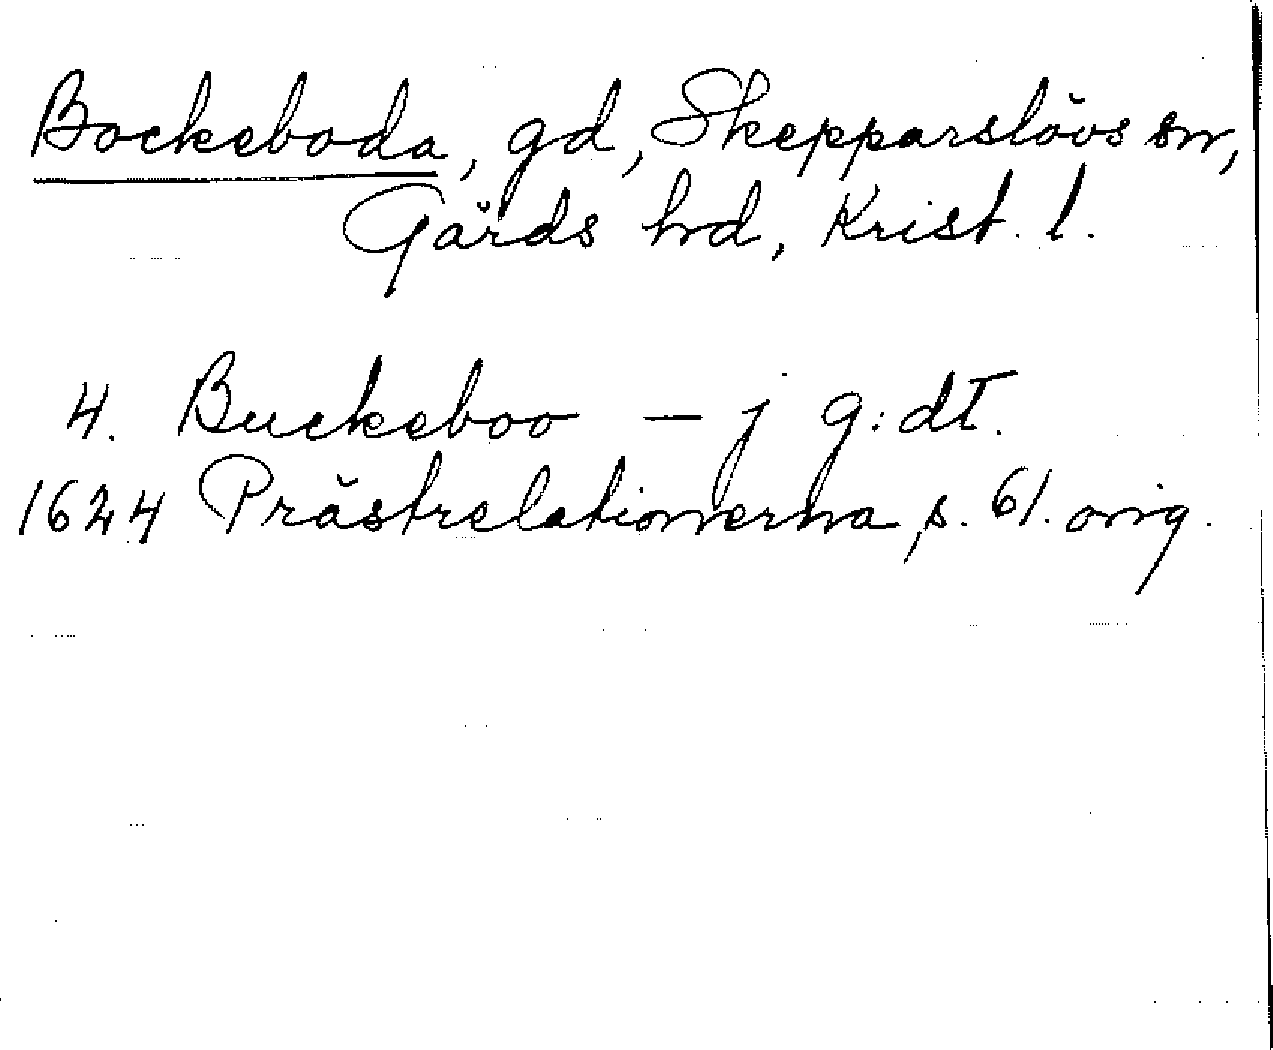 Bockeboda, gd, Skepparslövs sn,
Gärds hd, Krist. l.
4. Buckeboo — j g:dt.
1624 Prästrelationerna, s. 61. orig.